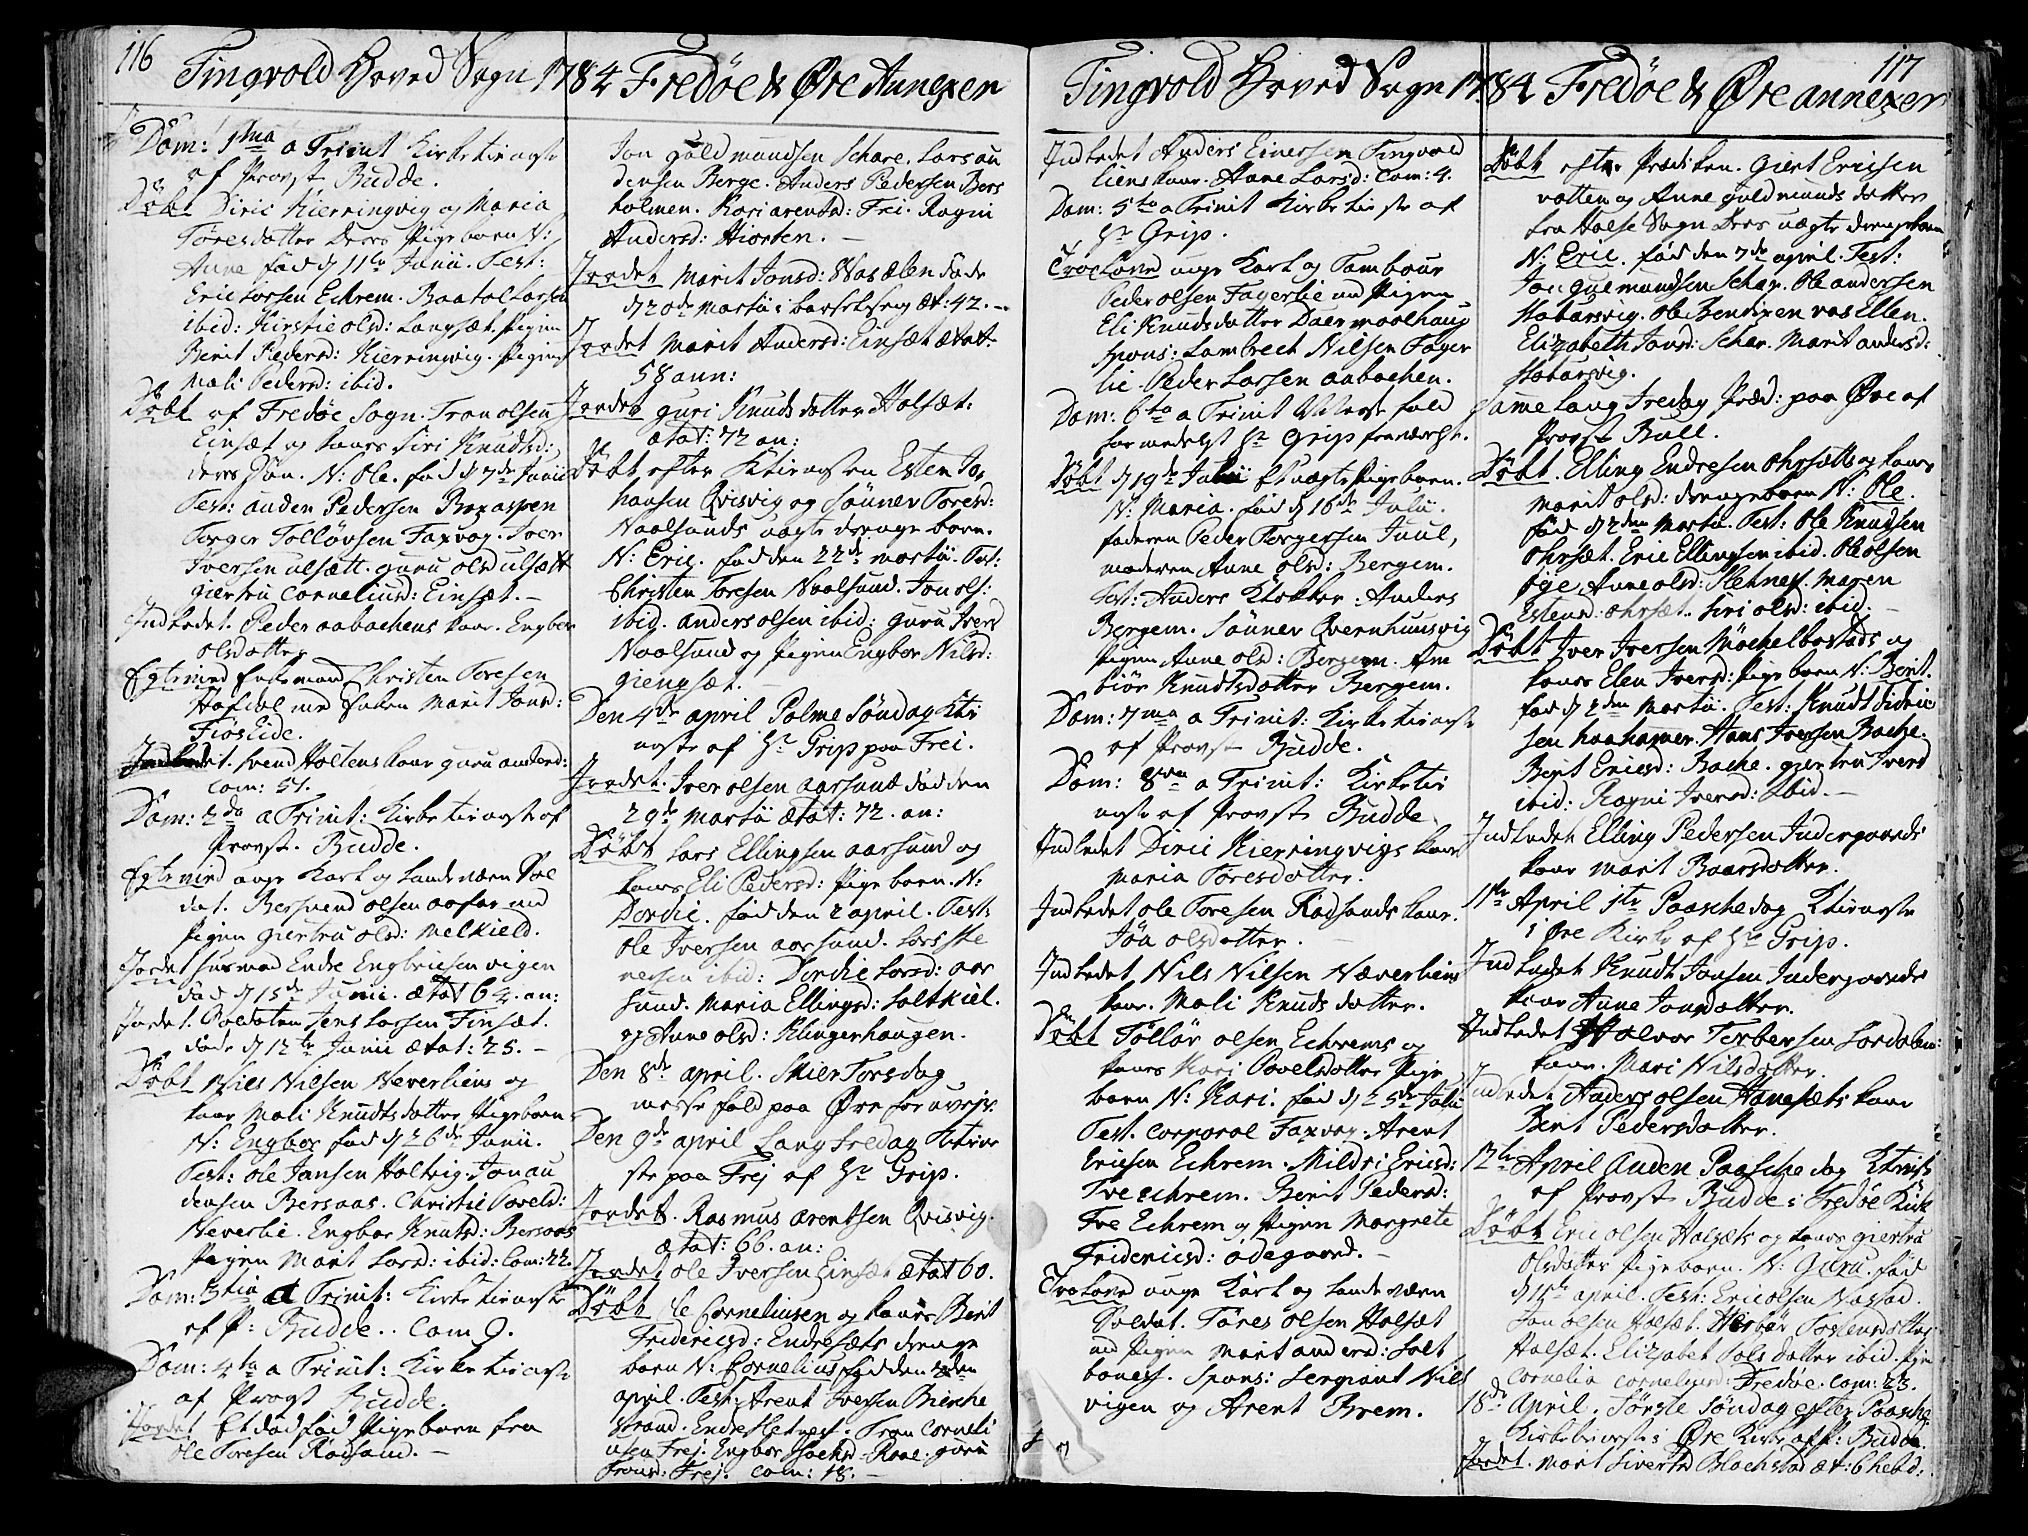 116
Tingvold Hoved Sogn 1784 Fredøe & Øre Annexer
Dom: 1ma a Trinit Kirketieneste
af Provst Budde.
Døbt Diric Kierringvig og Maria
Toresdatter Deres Pigebarn N:
Anne fød d 11te Junii. Test:
Eric Larsen Echrem. Baatol Larsen
ibid: Kirstie olsd: Langsæt. Pigen
Berit Pedersd: Kierringvig. Pigen
Mali Pedersd: ibid.
Døbt af Fredøe Sogn. Tron olsen
Einsæt og hans Siri Knudsd:
deres Søn. N: Ole. fød d 7de Junii
Test: auden Pedersen Boxaspen
Torger Tolløvsen Faxvog. Iver
Iversen ulsætt. guru olsd ulsætt
giertru Corneliusd: Einsæt. —
Indledet. Peder aabachens kone. Engbor
olsdatter
Egtevied Enkemand Christen Toresen
Hafdal med Enken Marit Jonsd:
Fiøseide.
Indledet. Svend Holtens kone guru andersd:
Com: 51.
Dom: 2da a Trinit: Kirketieneste af
Provst. Budde.
Egtevied unge Karl og Landeværn Sol
dat. Bersvend olsen aafar med
Pigen giertru olsd: Melkield.
Jordet Husmand Endre Engbricsen vigen
død d 15de Junii. ætat 64. an:
Jordet. Soldaten Jens Larsen Finsæt.
døde d 12te Junii ætat: 25. —
Døbt Nils Nilsen Neverliens og
kone Mali Knudsdatter Pigebarn
N: Engbor fød d 26de Junii.
Test: Ole Jansen Holtvig. Jon au
densen Bersaas. Christie Povelsd:
Neverlie. Engbor Knutsd: Bersaas
Pigen Marit Larsd: ibid: Com: 22.
Dom: 3tia a Trinit: Kirketieneste
af P: Budde.. Com 9.
Dom: 4ta a Trinit: Kirketieneste
af Provst Budde.
Jordet Et dødfød Pigebarn fra
Ole Toresen Rodsand. —
Jon guldmundsen Schare. Lars au
densen Berge. Anders Pedersen Bors
holmen. Kari arentsd: Frei. Ragni
Andersd: Hiorten. —
Jordet Marit Jonsd: Wasælen døde
d 20de Martii i barselseng æt: 42. —
Jordet Marit Andersd: Einsæt ætat
58 ann:
Jordet guri Knudsdatter Holsæt:
ætat: 72 an:
Døbt efter Ktienesten Esten Jo
hansen Qvisvig og Sønnev Toresd:
Naalsunds uægte drengebarn.
N: Eric. fød den 22de Martii. Test:
Christen Toresen Naalsund. Jon ols:
ibid. anders olsen ibid: guru Ivers
Naalsund og Pigen Engbor Nilsd:
giengsæt. —
Den 4de april Palme Søndag Kti
neste af Hr Grip paa Frei.
Jordet. Iver olsen aarsund død den
29de Martii ætat: 72. an:
Døbt Lars Ellingsen aarsund og
hans Eli Pedersd: Pigebarn. N:
Dordie. fød den 2 april. Test:
Ole Iversen aarsund. Lars Ste
nersen ibid: Dordie Larsd: aar
sund. Maria Ellingsd: Saltkiel.
og Anne olsd: Klingerhaugen.
Den 8de april. Skier Torsdag
messefald paa Øre for uveir.
Den 9de april Lang fredag Ktiene
ste paa Frej af Hr Grip.
Jordet. Rasmus arentsen Qvisvig.
ætat: 66. an:
Jordet ole Iversen Einsæt ætat 60.
Døbt Ole Corneliusen og kones Berit
Fridericsd: Endresæts drenge
barn N: Cornelius fød den 8den
april. Test: Arent Iversen Birche
strand. Endre Hetnæs. Tron Corneli
usen Frej. Engbor Isachsd. Roal. guru
Tronsd: Frej. Com: 18. —
117
Tingvold Hoved Sogn 1784 Fredøe & Øre annexer
Indledet Anders Einersen Tingvold
liens kone. Anne Larsd: Com: 4.
Dom: 5ta a Trinit Kirketieneste af
Hr Grip.
Troelovd unge Karl og Tambour
Peder olsen Fagerlie med Pigen
Eli Knudsdatter Daermoolhaug
Spons: Lambrect Nilsen Fager
lie. Peder Larsen aabachen.
Dom: 6ta a Trinit Messefald
formedelst Hr Grip fraværelse.
Døbt d 19de Julii Et uægte Pigebarn.
N: Maria. fød d 16de Julii.
faderen Peder Torgersen Juul,
moderen Anne olsd: Bergem.
Test: Anders Klokker. Anders
Bergem. Sønnev Qvernhuusvig
Pigen Anne olsd: Bergem. Am
biør Knudsdatter Bergem.
Dom: 7ma a Trinit: Kirketieneste
af Provst Budde.
Dom: 8va a Trinit: Kirketie
neste af Provst Budde.
Indledet Diric Kierringvigs kone
Maria Toresdatter.
Indledet Ole Toresen Rodsands kone.
Jøa olsdatter. —
Indledet Nils Nilsen Næverliens
kone. Mali Knudsdatter.
Døbt Tolløv olsen Echrems og
kones Kari Povelsdatter Pige
barn N: Kari. fød d 25de Julii
Test. Corporal Faxvog. Arent
Ericsen Echrem. Mildri Ericsd:
Tveechrem. Berit Pedersd:
Tve Echrem og Pigen Margrete
Fridericsd: ødegaard. —
Troelovd unge Karl og Landeværn
Soldat. Tøres olsen Holsæt
med Pigen Marit andersd: Salt
bones. Spons: Sergiant Nils
vigen og Arent Brem.
Døbt efter Prædiken. Giert Ericsen
vatten og Anne guldmunds datter
fra Halse Sogn Deres uægte drengebarn
N: Eric. fød den 7de april. Test:
Jon gulmundsen Schar. Ole andersen
Stabarsvig. Ole Bendixen vas Ellen.
Elizabeth Jonsd: Schar. Marit andersd:
Stabarsvig.
Samme Lang Fredag Præd: paa Øre af
Provst Bull.
Døbt. Elling Endresen ohrsætts og kones
Marit olsd: drengebarn N: Ole.
fød d 2den Martii. Test: Ole Knudsen
ohrsæt. Eric Ellingsen ibid. Ole olsen
øye. Anne olsd: Hetnes. Maren
Estensd. ohrsæt. Siri olsd: ibid. —
Døbt Iver Iversen Møchelbostads og
kones Elen Iversd: Pigebarn N: Berit.
fød d 2den Martii. Test: Knudt didric
sen haahamer. Hans Iversen Bache.
Berit Ericsd: Bache. giertru Iversd
ibid: Ragni Iversd: Ibid. —
Indledet Elling Pedersen Indergaards
kone Marit Baarsdatter.
11te April 1te Paaschedag Ktieneste
i Øre Kirke af Hr Grip.
Indledet Knudt Jonsen Indergaards
kone Anne Jonsdatter.
Indledet Halvor Torbersen Lordalen:
kone. Mari Nilsdatter.
Indledet Anders olsen Hanesæts kone
Berit Pedersdatter.
12te April Anden Paaschedag Ktnist
af Provst Budde i Fredøe Kirk
Døbt Eric olsen Holsæts og kones giertru
olsdatter Pigebarn. N: Guru. fød
d 11te april. Test: Eric olsen Nastad.
Jon olsen Holsæt. Herbor Torstensdatter
Holsæt. Elizabet Polsdatter ibid. Pigen
Cornelia Corneliusd: Fredøe. Com: 23.
18de April. Første Søndag efter Paasche
Kirketieneste i Øre Kirke af P: Budde.
Jordet. Marit Sivertsd Blachstad æt: 6 hebd: